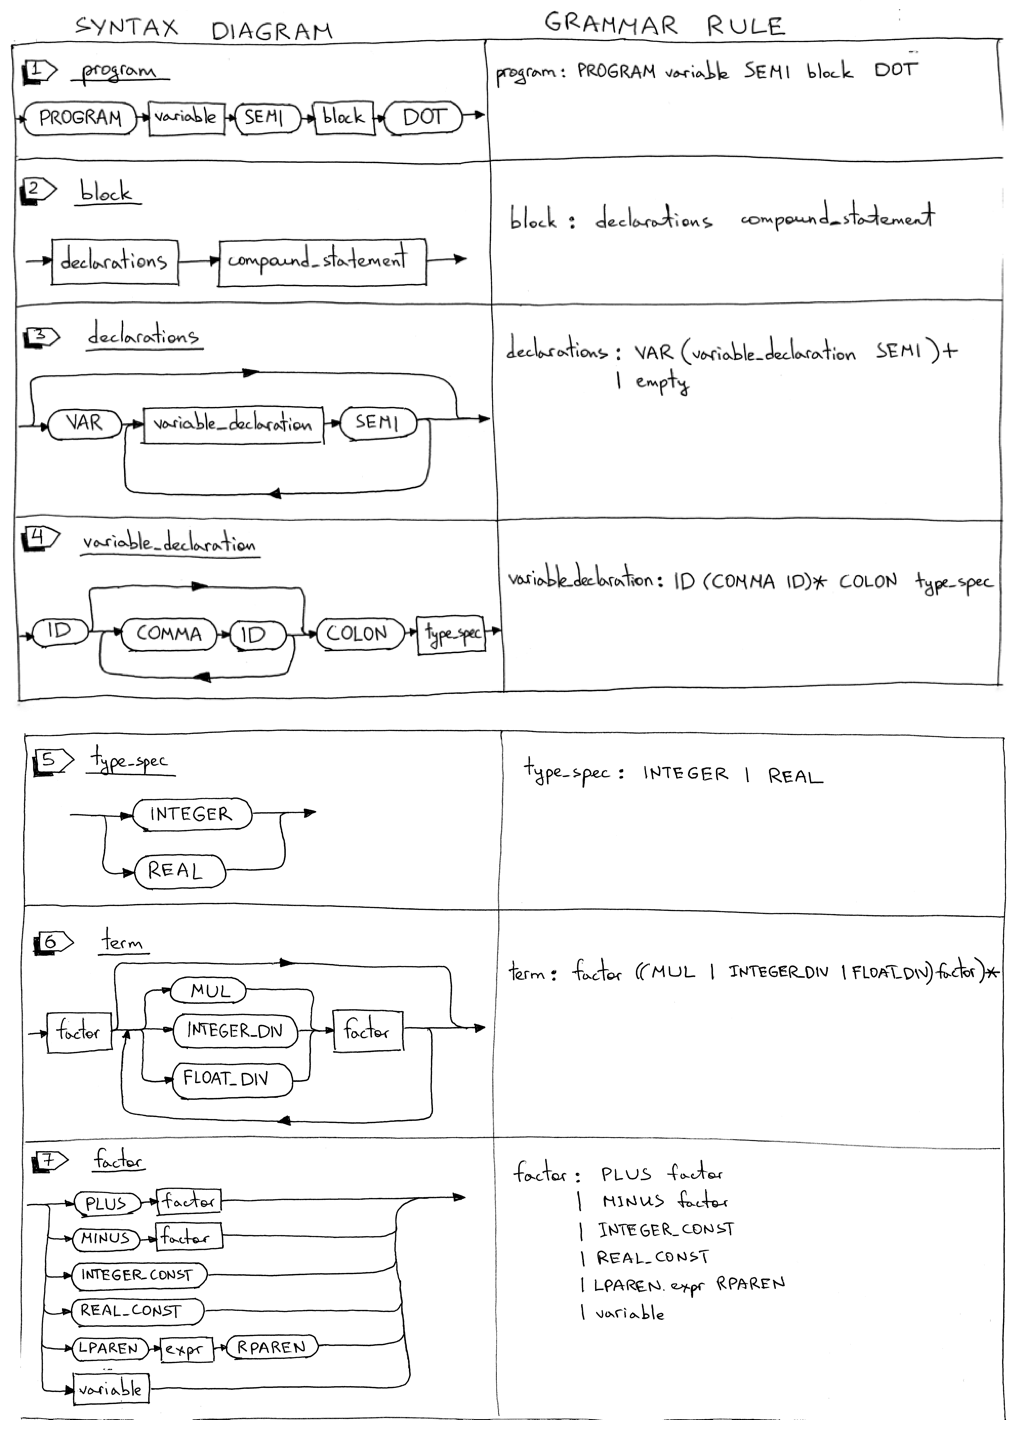 SYNTAX DIAGRAM
GRAMMAR RULE
1 program
PROGRAM variable SEMI block DOT
program: PROGRAM variable SEMI block DOT
2 block
declarations compound_statement
block: declarations compound_statement
3 declarations
VAR variable_declaration SEMI
declarations: VAR (variable_declaration SEMI)+
| empty
4 variable_declaration
ID COMMA ID COLON type_spec
variable_declaration: ID (COMMA ID)* COLON type_spec
5 type_spec
INTEGER
REAL
type_spec: INTEGER | REAL
6 term
MUL
factor INTEGER_DIV factor
FLOAT_DIV
term: factor ((MUL | INTEGER_DIV | FLOAT_DIV) factor)*
7 factor
PLUS factor
MINUS factor
INTEGER_CONST
REAL_CONST
LPAREN expr RPAREN
variable
factor: PLUS factor
| MINUS factor
| INTEGER_CONST
| REAL_CONST
| LPAREN expr RPAREN
| variable